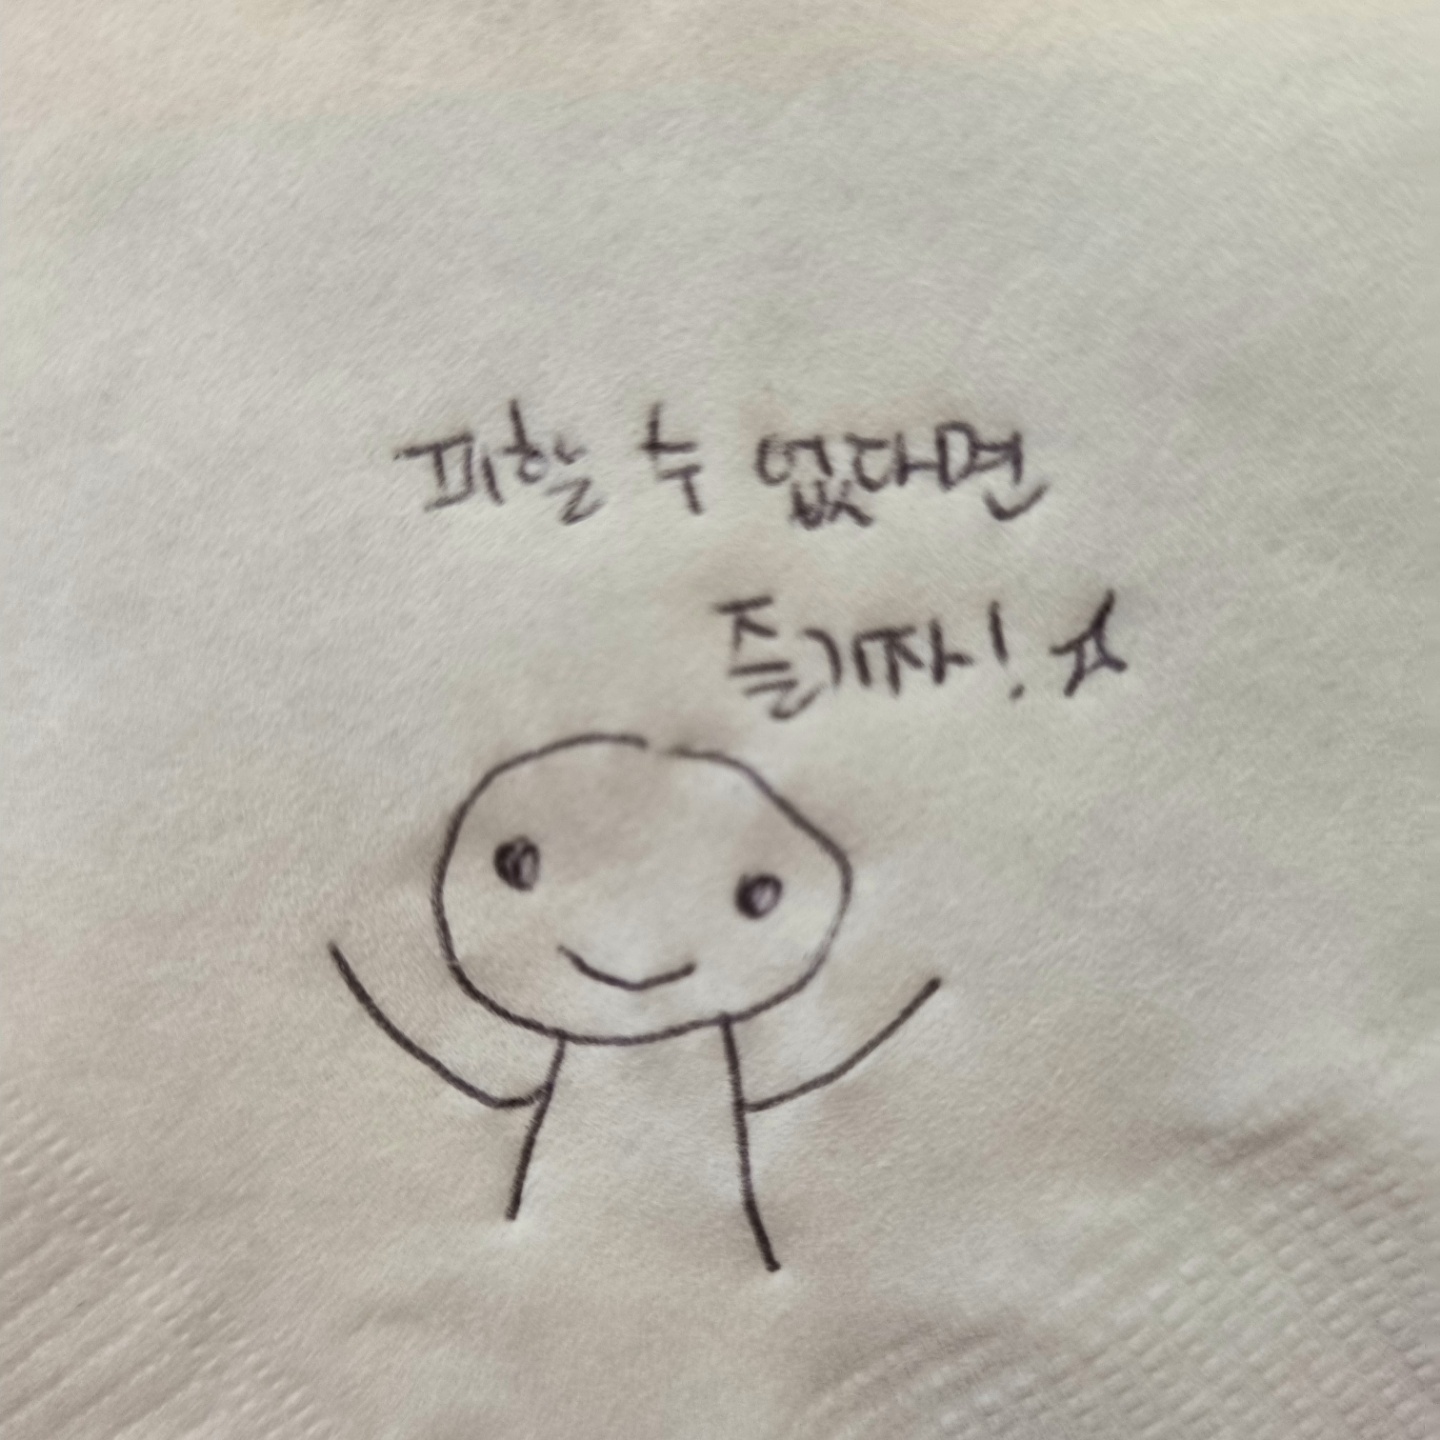 피할 수 없다면
즐기자! ☆